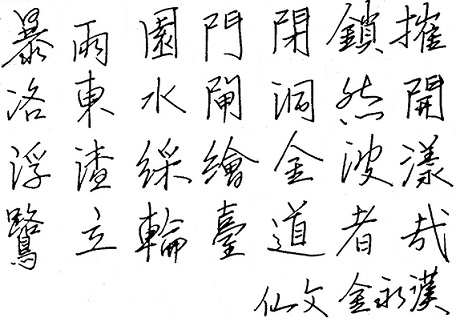 暴雨園門閉鎖摧
洛東水閘洞然開
浮渣綵繪金波漾
鷺立輪臺道者哉
仙文 金永漢